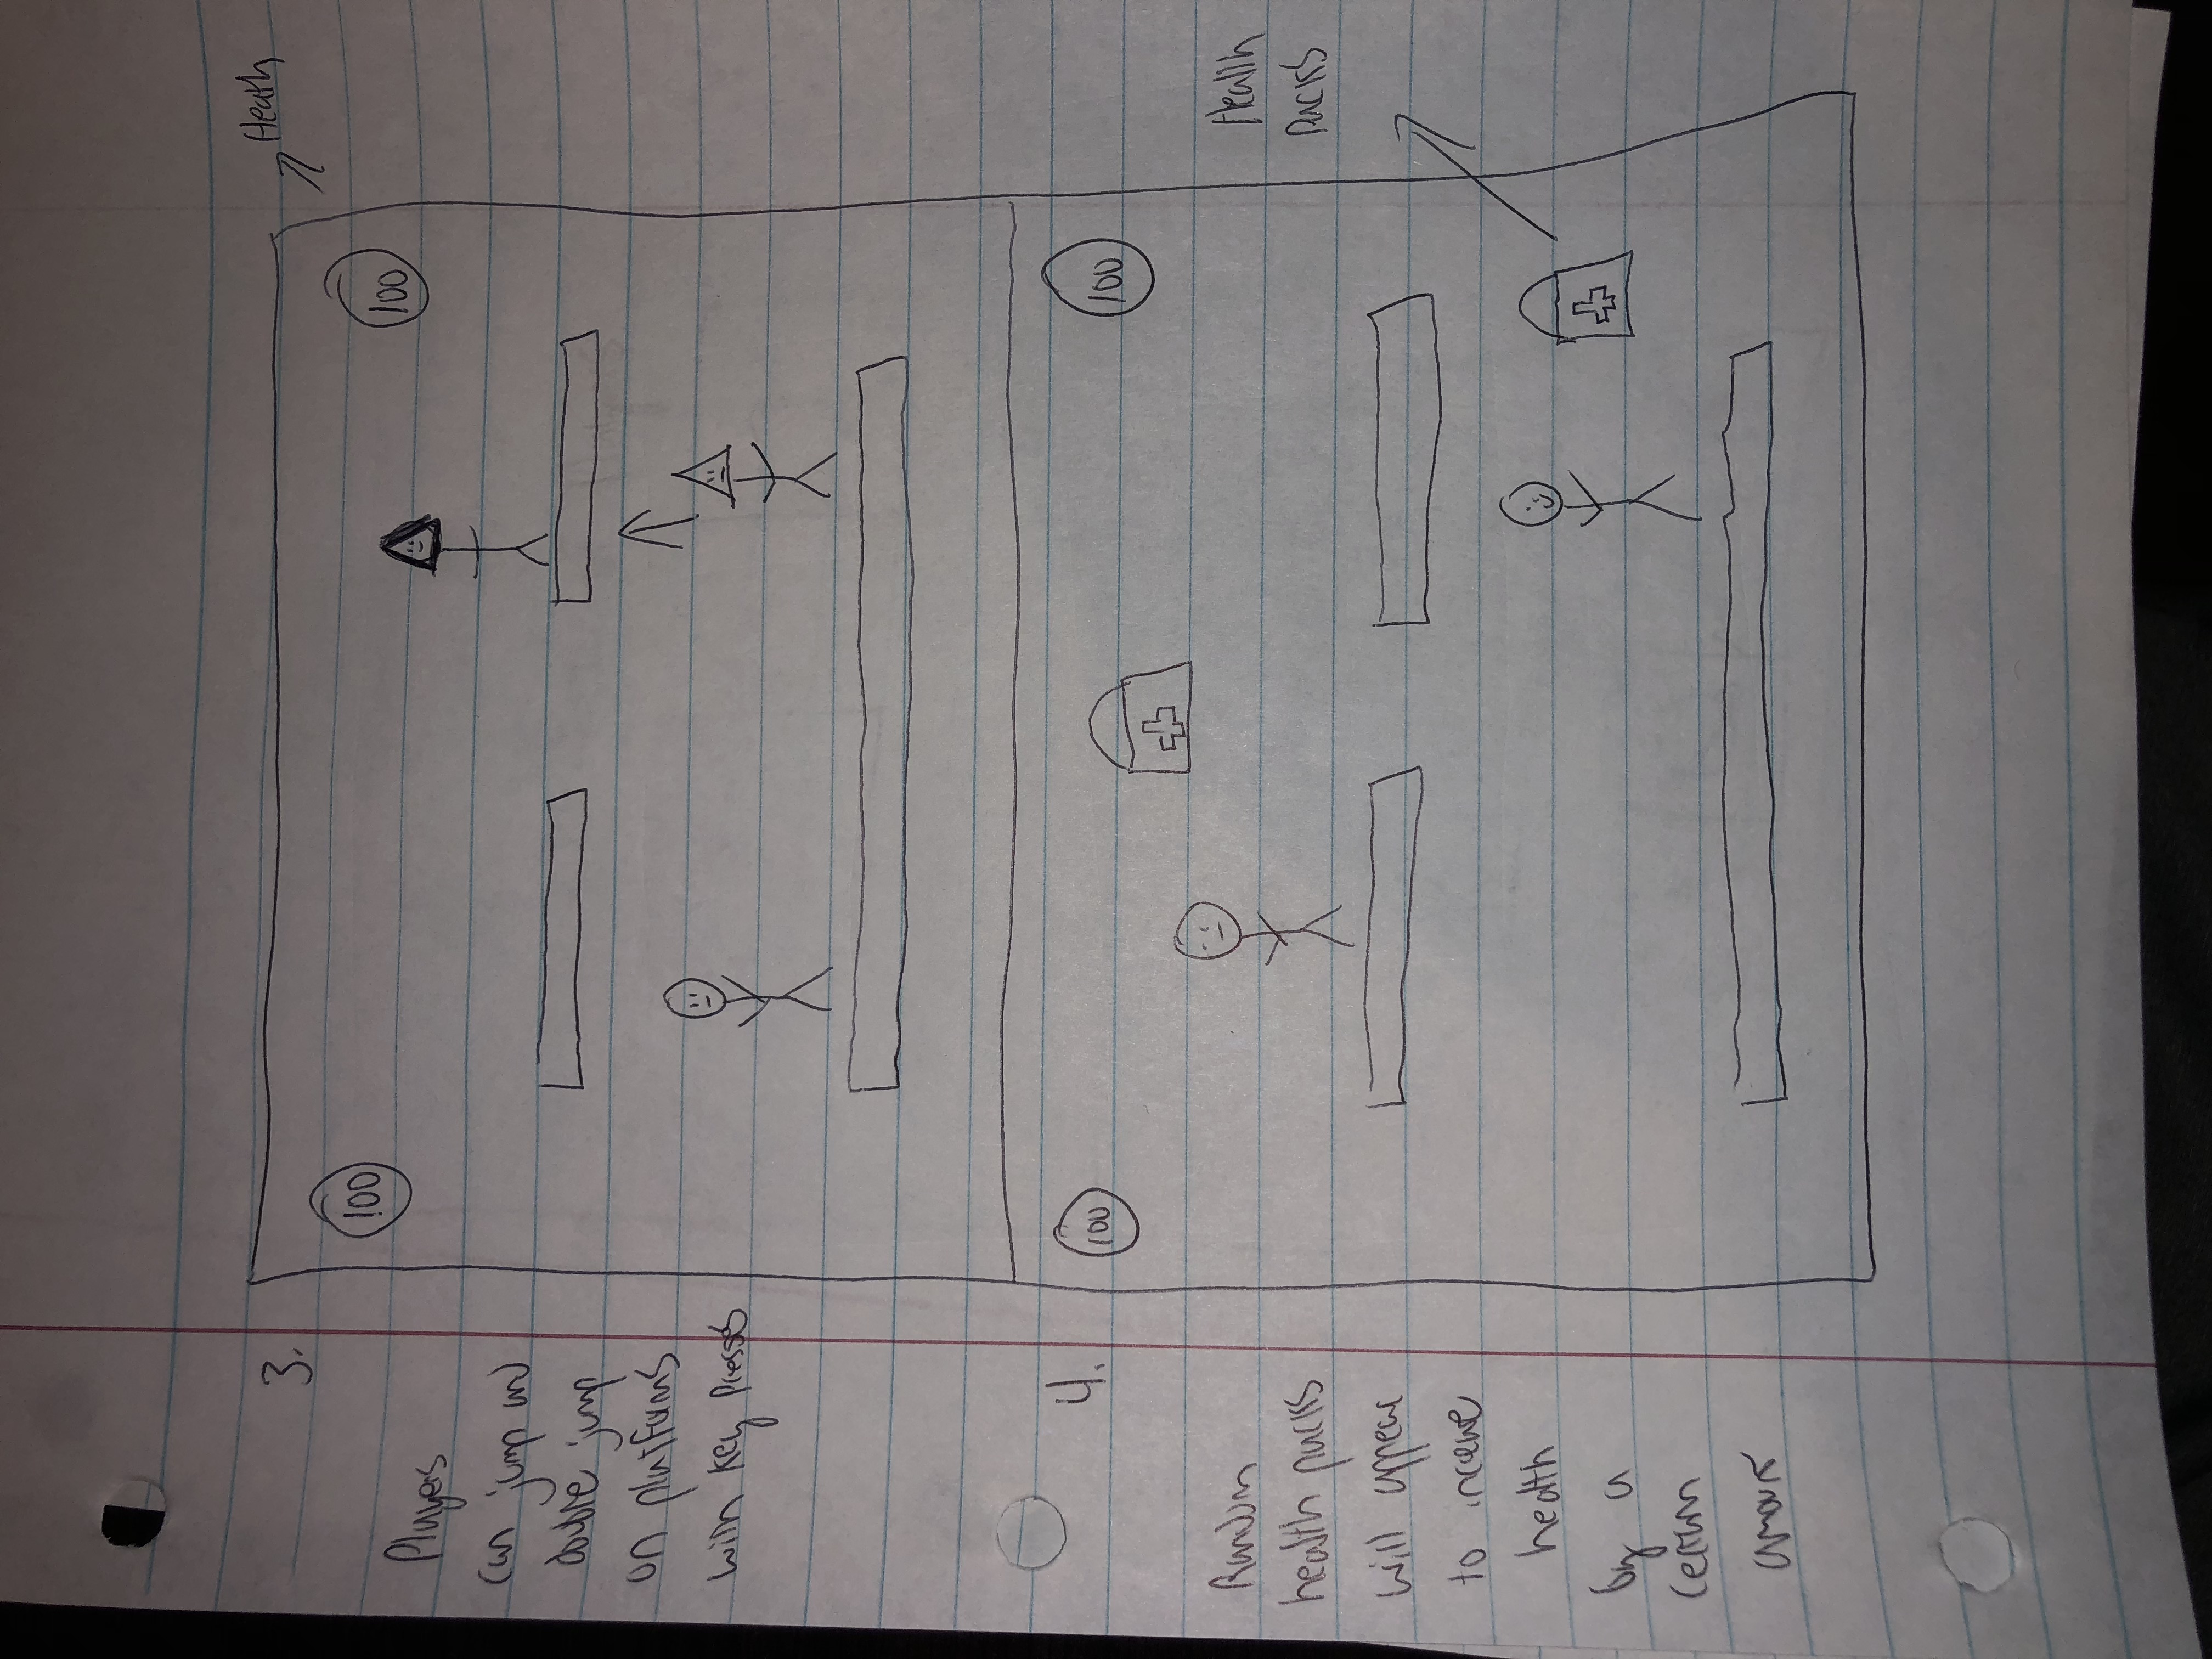 3.
Heath
100
100
Players
can jump and
double jump
on platforms
with key presses
4.
100
100
Random
health packs
will appear
to increase
health
by a
certain
amount
Health
Packs